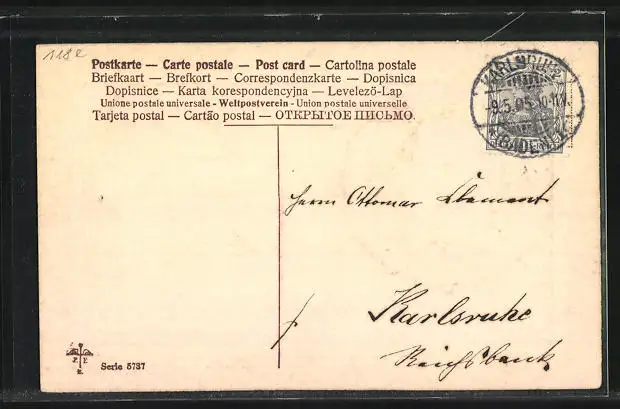 1182
Postkarte — Carte postale — Post card — Cartolina postale
Briefkaart — Brefkort — Correspondenzkarte — Dopisnica
Dopisnice — Karta korespondencyjna — Levelező-Lap
Unione postale universale - Weltpostverein - Union postale universelle
Tarjeta postal — Cartão postal — ОТКРЫТОЕ ПИСЬМО.
KARLSRUHE
9.5.05.10-11
(BADEN)
Herrn Ottomar
Karlsruhe
Reichsbank
Serie 5737